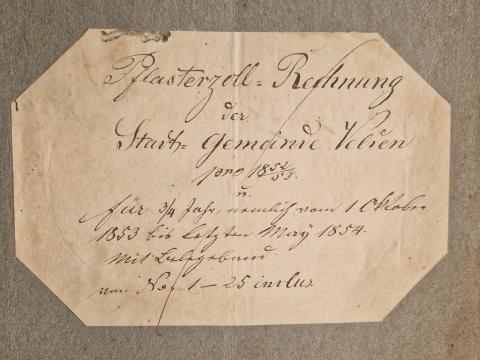 Pflasterzoll-Rechnung
der
Stadt-Gemeinde Velden
pro 1852/53.
u.
für 3/4 Jahr, nemlich vom 1 Oktober
1853 bis letzten May 1854.
Mit Belegeband
von No. 1 - 25 inclus.